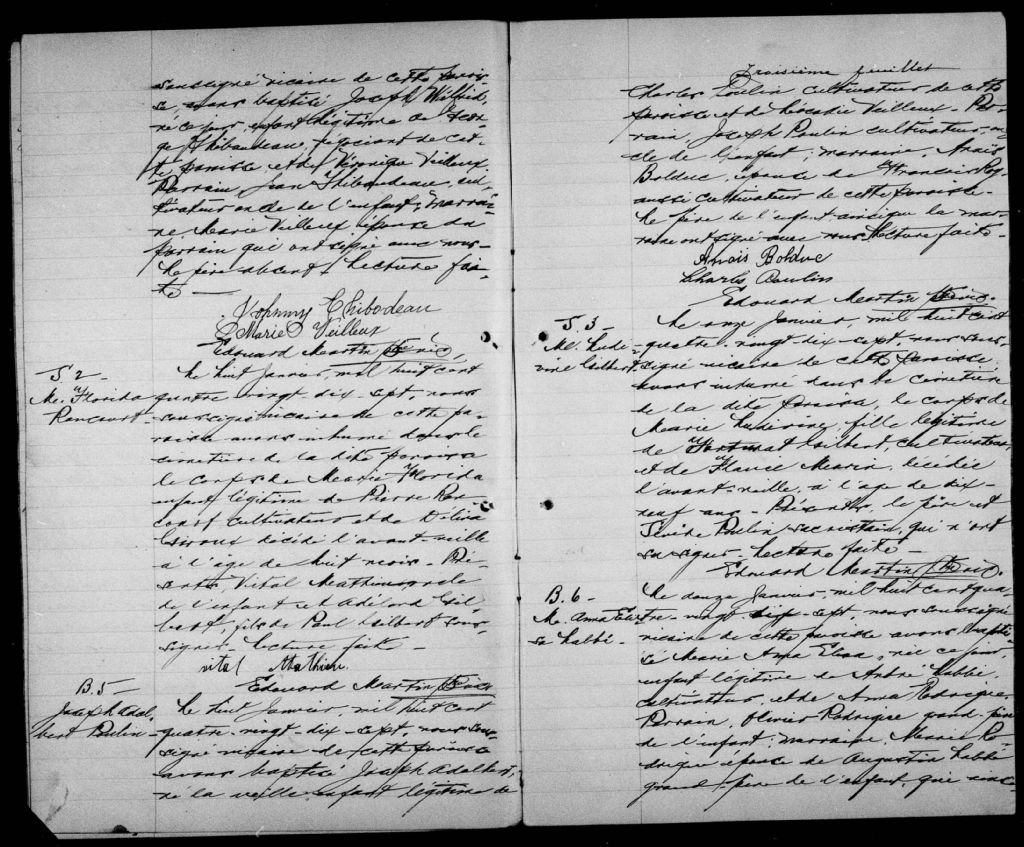 soussigné vicaire de cette parois-
se, avons baptisé Joseph Wilfrid,
né ce jour, enfant légitime de Geor-
ge Thibaudeau, négociant de cet-
te paroisse et de Véronique Veilleux
Parrain, Jean Thibaudeau, cul-
tivateur oncle de l'enfant; marrai-
ne Marie Veilleux épouse du
parrain qui ont signé avec nous-
Le père absent. Lecture fai-
te —
Johnny Thibodeau
Marie Veilleux
Edouard Martin Ptre Vic.
S. 2 —
M. Florida
Rancourt-
Le huit janvier, mil huit cent
quatre vingt dix-sept, nous
soussigné vicaire de cette pa-
roisse avons inhumé dans le
cimetière de la dite paroisse
le corps de Marie Florida
enfant légitime de Pierre Ran-
court cultivateur et de Délina
Giroux décédé l'avant veille
à l'âge de huit mois - Pré-
sents Vital Mathieu oncle
de l'enfant et Adélard Gil-
bert, fils de Paul Gilbert sous-
signés - lecture faite -
vital Mathieu
Edouard Martin Ptre Vic
B. 5 —
Joseph Adal
bert Poulin-
Le huit janvier, mil huit cent
quatre-vingt-dix-sept, nous sous-
signé vicaire de cette paroisse
avons baptisé Joseph Adalbert,
né la veille enfant légitime de
Troisième feuillet
Charles Poulin cultivateur de cette
paroisse et de Léocadie Veilleux - Par-
rain, Joseph Poulin cultivateur on-
cle de l'enfant; marraine, Anaïs
Bolduc, épouse de Francis Roy
aussi cultivateur de cette paroisse-
Le père de l'enfant ainsi que la mar-
raine ont signé avec nous Lecture faite-
Anaïs Bolduc
Charles Poulin
Edouard Martin Ptre Vic.
S. 3 —
M. Lude-
vine Gilbert
Le onze janvier, mil huit cent
quatre-vingt dix-sept, nous sous-
signé vicaire de cette paroisse,
avons inhumé dans le cimetière
de la dite paroisse, le corps de
Marie Ludevine, fille légitime
de Fortunat Gilbert, cultivateur,
et de Flavie Morin, décédée
l'avant-veille, à l'âge de dix-
neuf ans - Présents, le père et
Poulin sacristain, qui n'ont
su signer - Lecture faite -
Edouard Martin Ptre Vic.
B. 6 —
M. Anna
sa Labbé-
Le douze janvier, mil huit cent qua-
tre-vingt dix-sept, nous soussigné
vicaire de cette paroisse avons bapti-
sé Marie Anna Eliza, née ce jour,
enfant légitime de André Labbé,
cultivateur, et de Anna Rodrigue-
Parrain, Olivier Rodrigue grand-père
de l'enfant; marraine, Marie Ro-
drigue épouse de Augustin Labbé
grand-père de l'enfant, qui